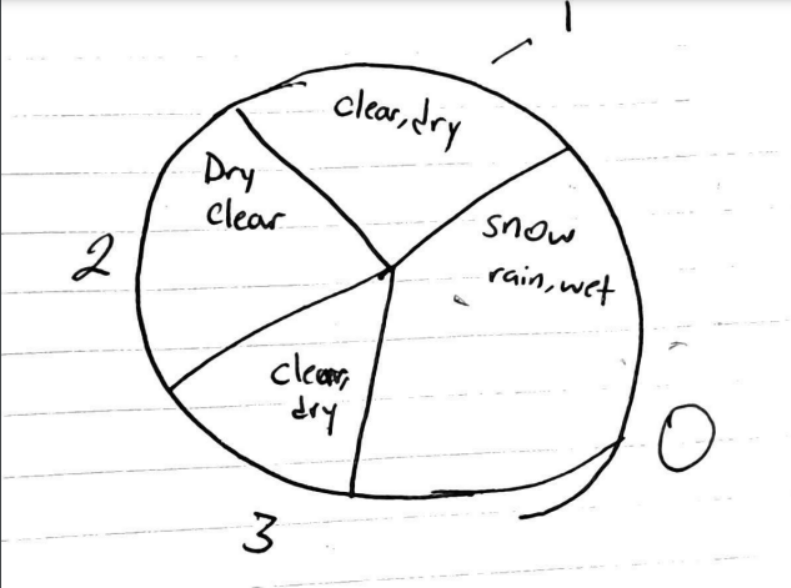 1
clear, dry
Dry
clear
snow
rain, wet
2
clear,
dry
0
3